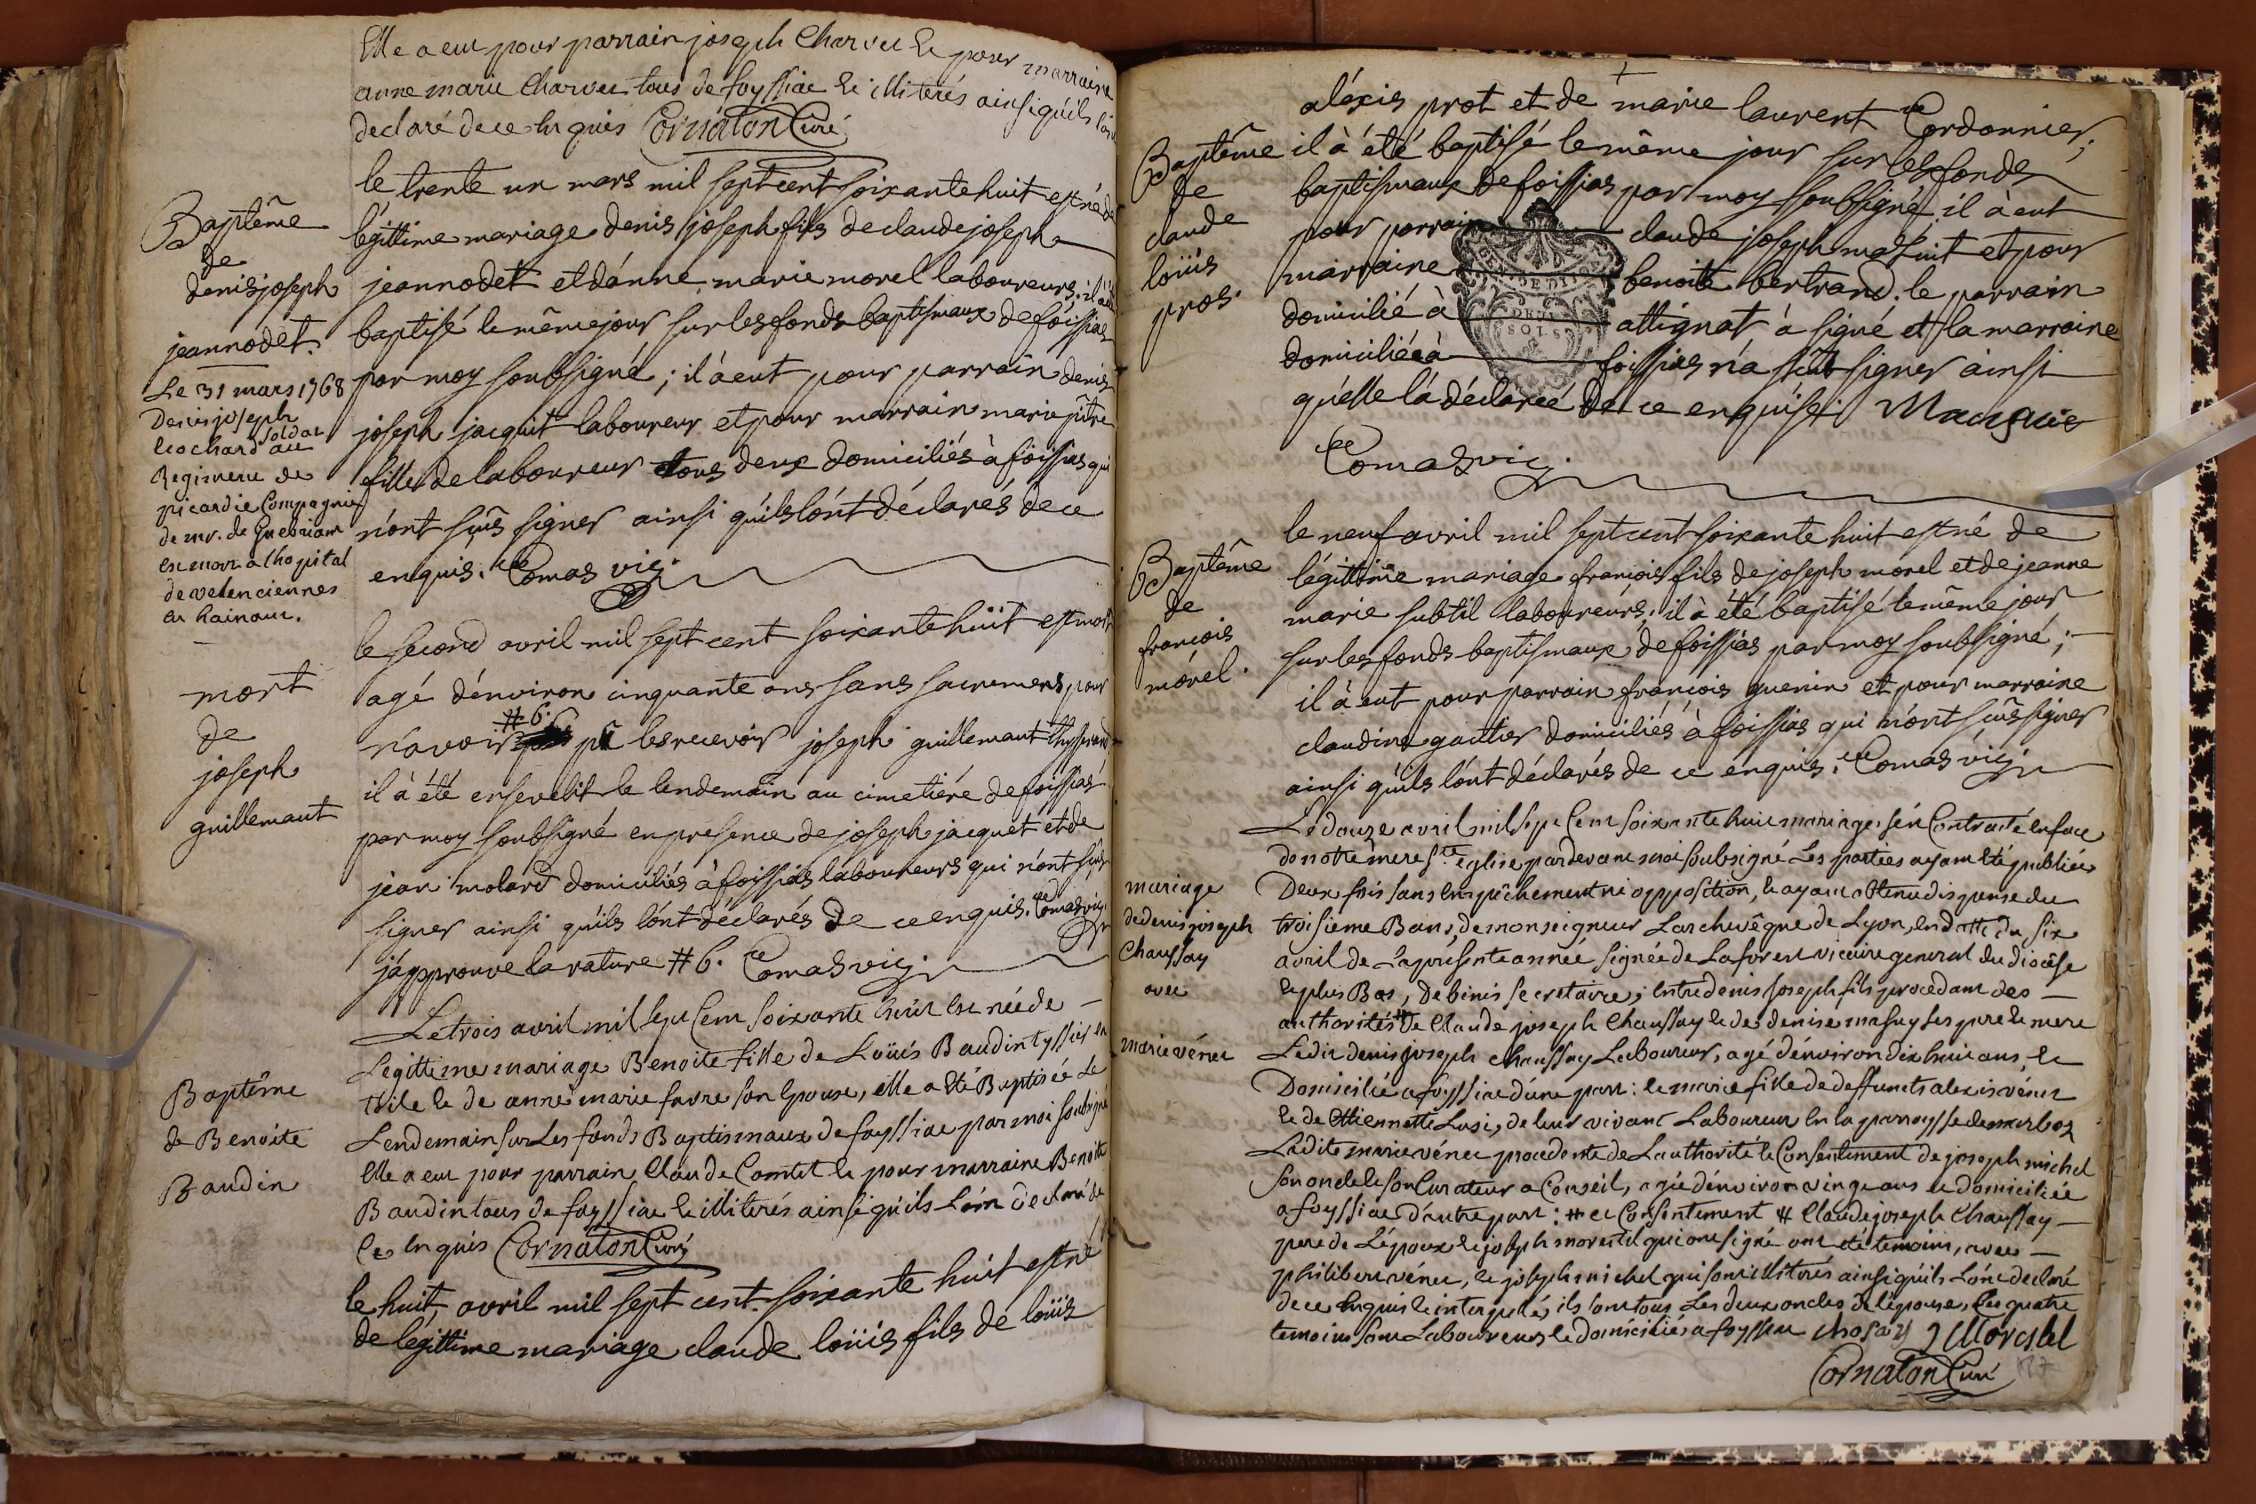 Elle a eu pour parrain joseph Charvet & pour marraine
anne marie Charvet tous de foyssiac & illiterés ainsi qu'ils l'ont
declaré de ce Enquis Cornaton Curé
Baptême
de
denis joseph
jeannodet.
le trente un mars mil sept cent soixante huit est né de
légittime mariage denis joseph fils de claude joseph
jeannodet et d'anne marie morel laboureurs; il à été
baptisé le même jour sur les fonds baptismaux de foissias
par moy soubsigné; il à eut pour parrain denis
joseph jacquit laboureur et pour marrain marie pitre
fille de laboureur tous deux domiciliés à foissias qui
n'ont sçûs signer ainsi qu'ils l'ónt déclarés de ce
enquis. Comas vic.
Le 31 mars 1768
Denis joseph
Cochard soldat
au
Regiment de
picardie Compagnie
de mr. de Guebriant
est mort a l'hopital
de valenciennes
en hainaut.
mort
de
joseph
guillemaut
le second avril mil sept cent soixante huit est mort
agé d'environ cinquante ans sans sacremens pour
n'avoir #6. pû les recevoir joseph guillemaut thysserand
il à été ensevelit le lendemain au cimetiére de foissias
par moy soubsigné en presence de joseph jacquet et de
jean molard domiciliés à foissias laboureurs qui n'ont sçûs
signer ainsi qu'ils l'ónt déclarés de ce enquis. Comas vic.
j'approuve la rature #6. Comas vic.
Baptême
de Benoite
Baudin
Le trois avril mil sept Cent soixante huit est née de
Legittime mariage Benoite fille de Loüis Baudin tyssier en
toile & de anne marie favre son Epouse, elle a été Baptisée Le
Lendemain sur Les fonds Baptismaux de foyssiac par moi soubsigné
Elle a eu pour parrain Claude Comtet & pour marraine Benoite
Baudin tous de foyssiac & illiterés ainsi qu'ils L'ont declaré de
Ce Enquis Cornaton Curé
le huit avril mil sept cent soixante huit est né
de légittime mariage claude loüis fils de loüis
aléxis prot et de marie laurent Cordonnier;
Baptême
de
claude
loüis
pros.
il à été baptisé le même jour sur les fonds
baptismaux de foissias par moy soubsigné. il à eut
pour parrain claude joseph masuit et pour
marraine benoite bertrand. le parrain
domicilié à attignat à signé et la marraine
domiciliée à foissias n'a sçût signer ainsi
qu'elle l'à déclarée de ce enquise.
Comas vic.
Baptême
de
françois
mórel.
le neuf avril mil sept cent soixante huit est né de
légittime mariage françois fils de joseph morel et de jeanne
marie subtil laboureurs; il à été baptisé le même jour
sur les fonds baptismaux de foissias par moy soubsigné;
il à eut pour parrain françois guenin et pour marraine
claudine gautier domiciliés à foissias qui n'ont sçûs signer
ainsi qu'ils l'ónt déclarés de ce enquis. Comas vic.
mariage
de denis joseph
Chaussay
avec
marie vénet
Le douze avril mil sept Cent soixante huit mariage s'est Contracté en face
de notre mere Ste Eglise pardevant moi soubsigné Les parties ayant été publiées
Deux fois sans Empêchement ni opposition, & ayant obtenu dispense du
troisieme Bans, de monseigneur L'archevêque de Lyon, en datte du six
avril de La presente année signée de Laforest vicaire general du diocèse
& plus Bas, De binis secretaire; entre denis joseph fils procedant des
authorités # de Claude joseph Chaussay & de denise masuy ses pere & mere
Ledit denis joseph Chaussay Laboureur, agé d'environ dix huit ans, &
Domicilié a foyssiac d'une part: & marie fille de deffunts alexis vénet
& de Ettiennette Lusi, de leur vivant Laboureur en la parroysse de marboz
Ladite marie vénet procedente de L'authorité & Consentement de joseph michel
son oncle & son Curateur a Conseil, agée d'environ vingt ans & domiciliée
a foyssiac d'autre part: # et Consentement # Claude joseph Chaussay
pere de L'époux & joseph morestel qui ont signé ont été temoins, avec
philibert vénet, & joseph michel qui sont illiterés ainsi qu'ils L'ont declaré
de ce Enquis & interpellés, ils sont tous Les deux oncles de l'épouse, Les quatre
temoins sont Laboureurs & domiciliés a foyssiac chosay J Morestel
Cornaton Curé